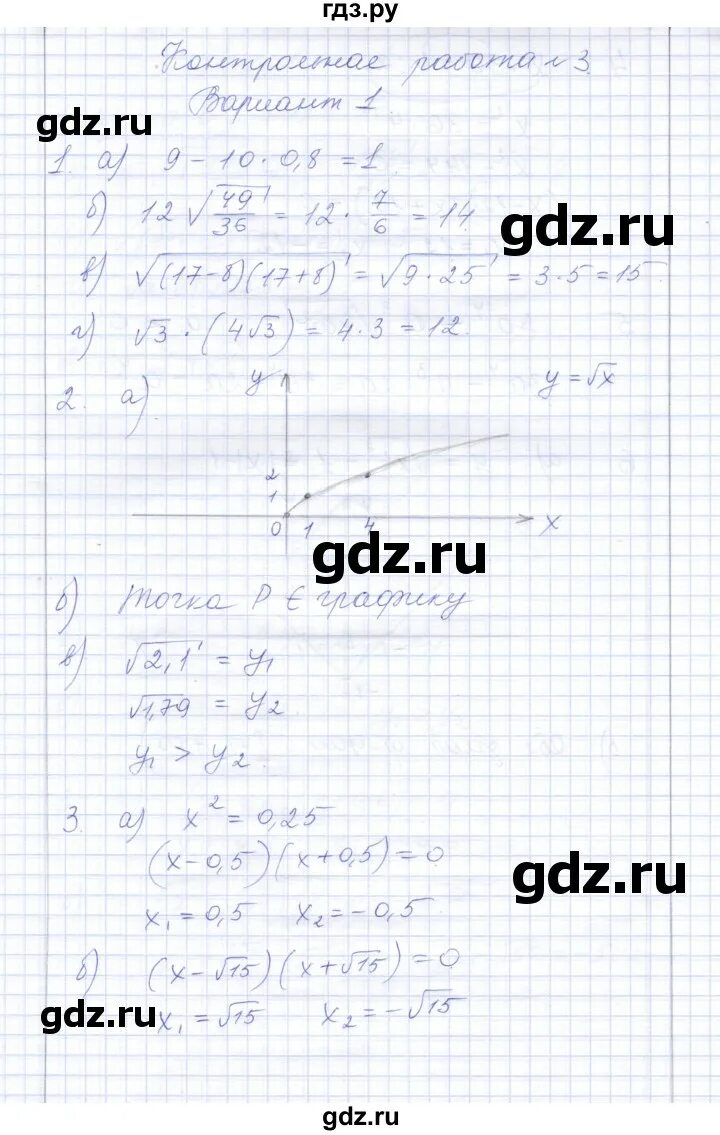 гдз.ру
Контрольная работа №3
Вариант 1
gdz.ru
1. а) 9 - 10 · 0,8 = 1
б) 12 √(49/36) = 12 · 7/6 = 14
gdz.ru
в) √((17-8)(17+8)) = √(9·25) = 3·5 = 15
г) √3 · (4√3) = 4·3 = 12
2. а)
y
y = √x
2
1
0 1 4 x
gdz.ru
б) точка P ∈ графику
в) √2,1 = y₁
√1,79 = y₂
y₁ > y₂
3. а) x² = 0,25
(x-0,5)(x+0,5) = 0
gdz.ru
x₁ = 0,5 x₂ = -0,5
б) (x-√15)(x+√15) = 0
gdz.ru
x₁ = √15 x₂ = -√15
gdz.ru